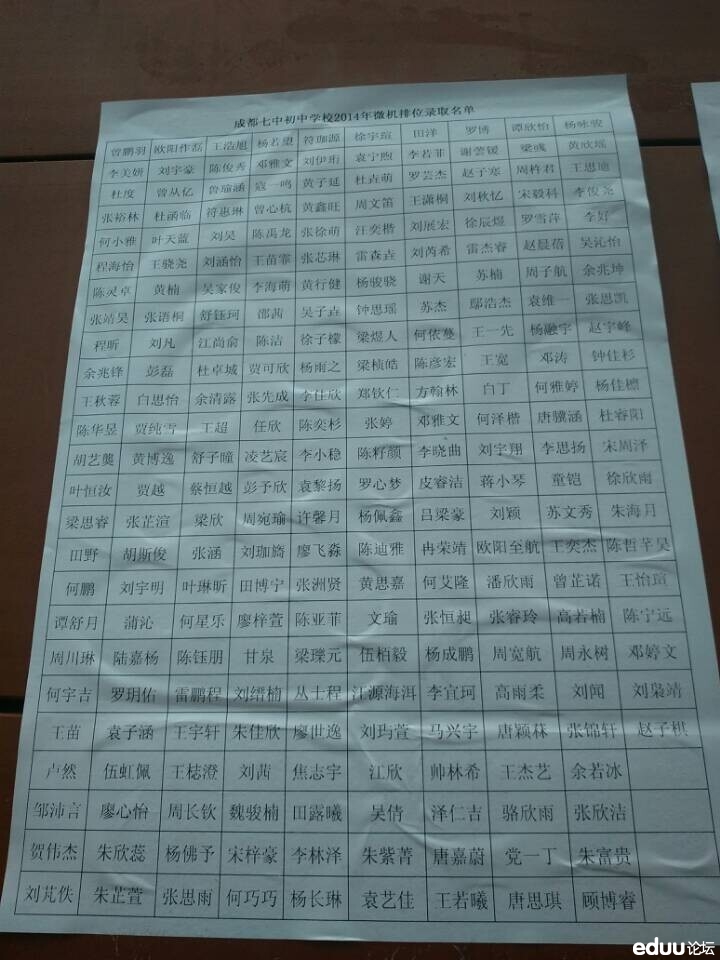 成都七中初中学校2014年微机排位录取名单
曾鹏羽 欧阳作磊 王浩旭 杨若望 符珈源 徐宇瑄 田洋 罗博 谭欣怡 杨咏骏
李美妍 刘宇豪 陈俊秀 邓雅文 刘伊珩 袁宁煦 李若菲 谢芸锾 梁彧 黄欣瑶
杜度 曾从亿 鲁瑜涵 寇一鸣 黄子延 杜卉萌 罗芸杰 赵子寒 周柞君 王思迪
张裕林 杜函临 符惠琳 曾心杭 黄鑫旺 周文笛 王潇桐 刘秋忆 宋毅科 李俊尧
何小雅 叶天蓝 刘昊 陈禹龙 张徐萌 汪奕楷 刘展宏 徐辰煜 罗雪萍 李好
程海怡 王骁尧 刘涵怡 王苗霏 张芯琳 雷森垚 刘芮希 雷杰睿 赵晨蓓 吴沁怡
陈灵卓 黄楠 吴家俊 李海萌 黄行健 杨骏骁 谢天 苏楠 周子航 余兆坤
张靖昊 张语桐 舒钰珂 邵茜 吴子卉 钟思瑶 苏杰 鄢浩杰 袁维一 张思凯
程昕 刘凡 江尚俞 陈洁 徐子檬 梁煜人 何依蔓 王一先 杨融宇 赵宇峰
余兆锋 彭磊 杜卓城 贾可欣 杨雨之 梁桢皓 陈彦宏 王宽 邓涛 钟佳杉
王秋蓉 白思怡 余清露 张先成 李佳欣 郑钦仁 方翰林 白丁 何雅婷 杨佳檀
陈华昱 贾纯雪 王超 任欣 陈奕杉 张婷 邓雅文 何泽楷 唐骥涵 杜睿阳
胡艺龑 黄博逸 舒子瞳 凌艺宸 李小稳 陈籽颜 李晓曲 刘宇翔 李思扬 宋周泽
叶恒汝 贾越 蔡恒越 彭予欣 袁黎扬 罗心梦 皮睿洁 蒋小琴 童铠 徐欣雨
梁思睿 张芷渲 梁欣 周宛瑜 许馨月 杨佩鑫 吕梁豪 刘颖 苏文秀 朱海月
田野 胡斯俊 张涵 刘珈旖 廖飞淼 陈迪雅 冉荣靖 欧阳至航 王奕杰 陈哲芊昊
何鹏 刘宇明 叶琳昕 田博宁 张洲贤 黄思嘉 何艾隆 潘欣雨 曾芷诺 王怡瑄
谭舒月 蒲沁 何星乐 廖梓萱 陈亚菲 文瑜 张恒昶 张睿玲 高若楠 陈宁远
周川琳 陆嘉杨 陈钰朋 甘泉 梁瑈元 伍柏毅 杨成鹏 周宽航 周永树 邓婷文
何宇吉 罗玥佑 雷鹏程 刘缙楠 丛士程 江源海洱 李宜珂 高雨柔 刘闻 刘枭靖
王苗 袁子涵 王宇轩 朱佳欣 廖世逸 刘玙萱 马兴宇 唐颖菻 张锦轩 赵子棋
卢然 伍虹佩 王梽澄 刘茜 焦志宇 江欣 帅林希 王杰艺 余若冰
邹沛言 廖心怡 周长钦 魏骏楠 田露曦 吴倩 泽仁吉 骆欣雨 张欣洁
贺伟杰 朱欣蕊 杨佛予 宋梓豪 李林泽 朱紫菁 唐嘉蔚 党一丁 朱富贵
刘芃佚 朱芷萱 张思雨 何巧巧 杨长琳 袁艺佳 王若曦 唐思琪 顾博睿
eduu论坛